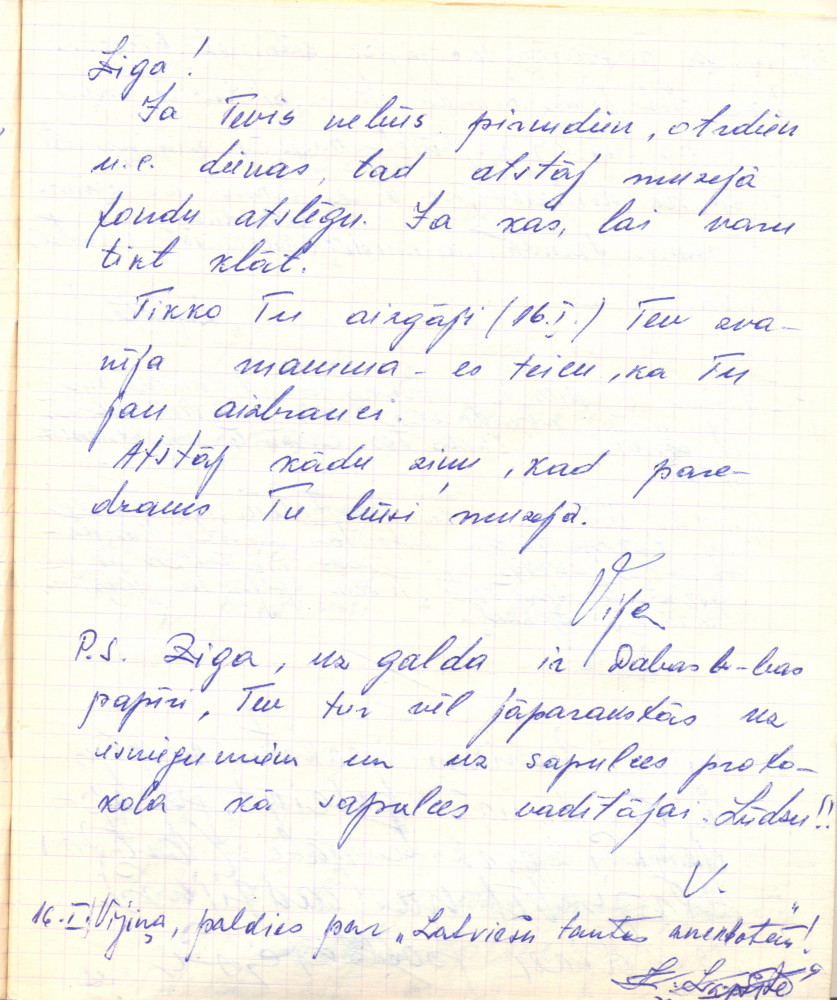 Ziga!
Ja Tevis nebūs pirmdien, otrdien
u.c. dienas, tad atstāj muzejā
fondu atslēgu. Ja kas, lai varu
tikt klāt.
Tikko Tu aizgāji (16.I.) Tev zva-
nīja mamma - es teicu, ka Tu
jau aizbrauci.
Atstāj kādu ziņu, kad pare-
dzams Tu būsi muzejā.
Vija
P.S. Ziga, uz galda ir Dabas b-bas
papīri, Tev tur vēl jāparakstās uz
iesniegumiem un uz sapulces proto-
kola kā sapulces vadītājai. Lūdzu!!
V.
16.I. Vijiņa, paldies par „Latviešu tautas anekdotēm"!